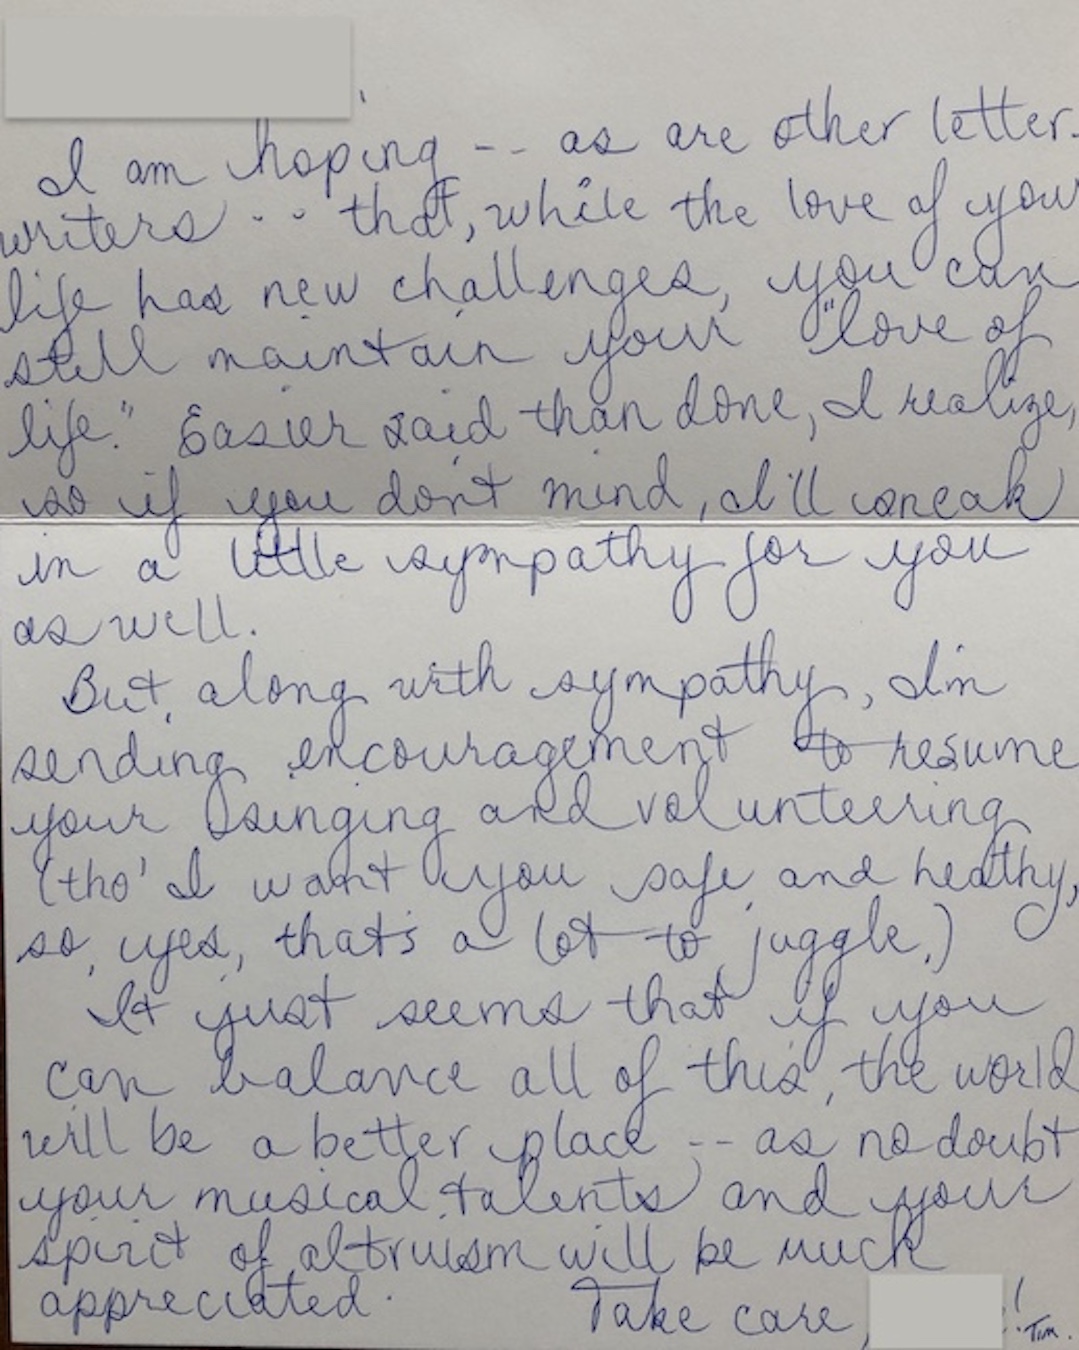 I am hoping -- as are other letter-
writers -- that, while the love of your
life has new challenges, you can
still maintain your "love of
life." Easier said than done, I realize,
so if you don't mind, I'll sneak
in a little sympathy for you
as well.
But, along with sympathy, I'm
sending encouragement to resume
your singing and volunteering
(tho' I want you safe and heathy,
so, yes, that's a lot to juggle.)
It just seems that if you
can balance all of this, the world
will be a better place -- as no doubt
your musical talents and your
spirit of altruism will be much
appreciated. Take care, ! Tim.